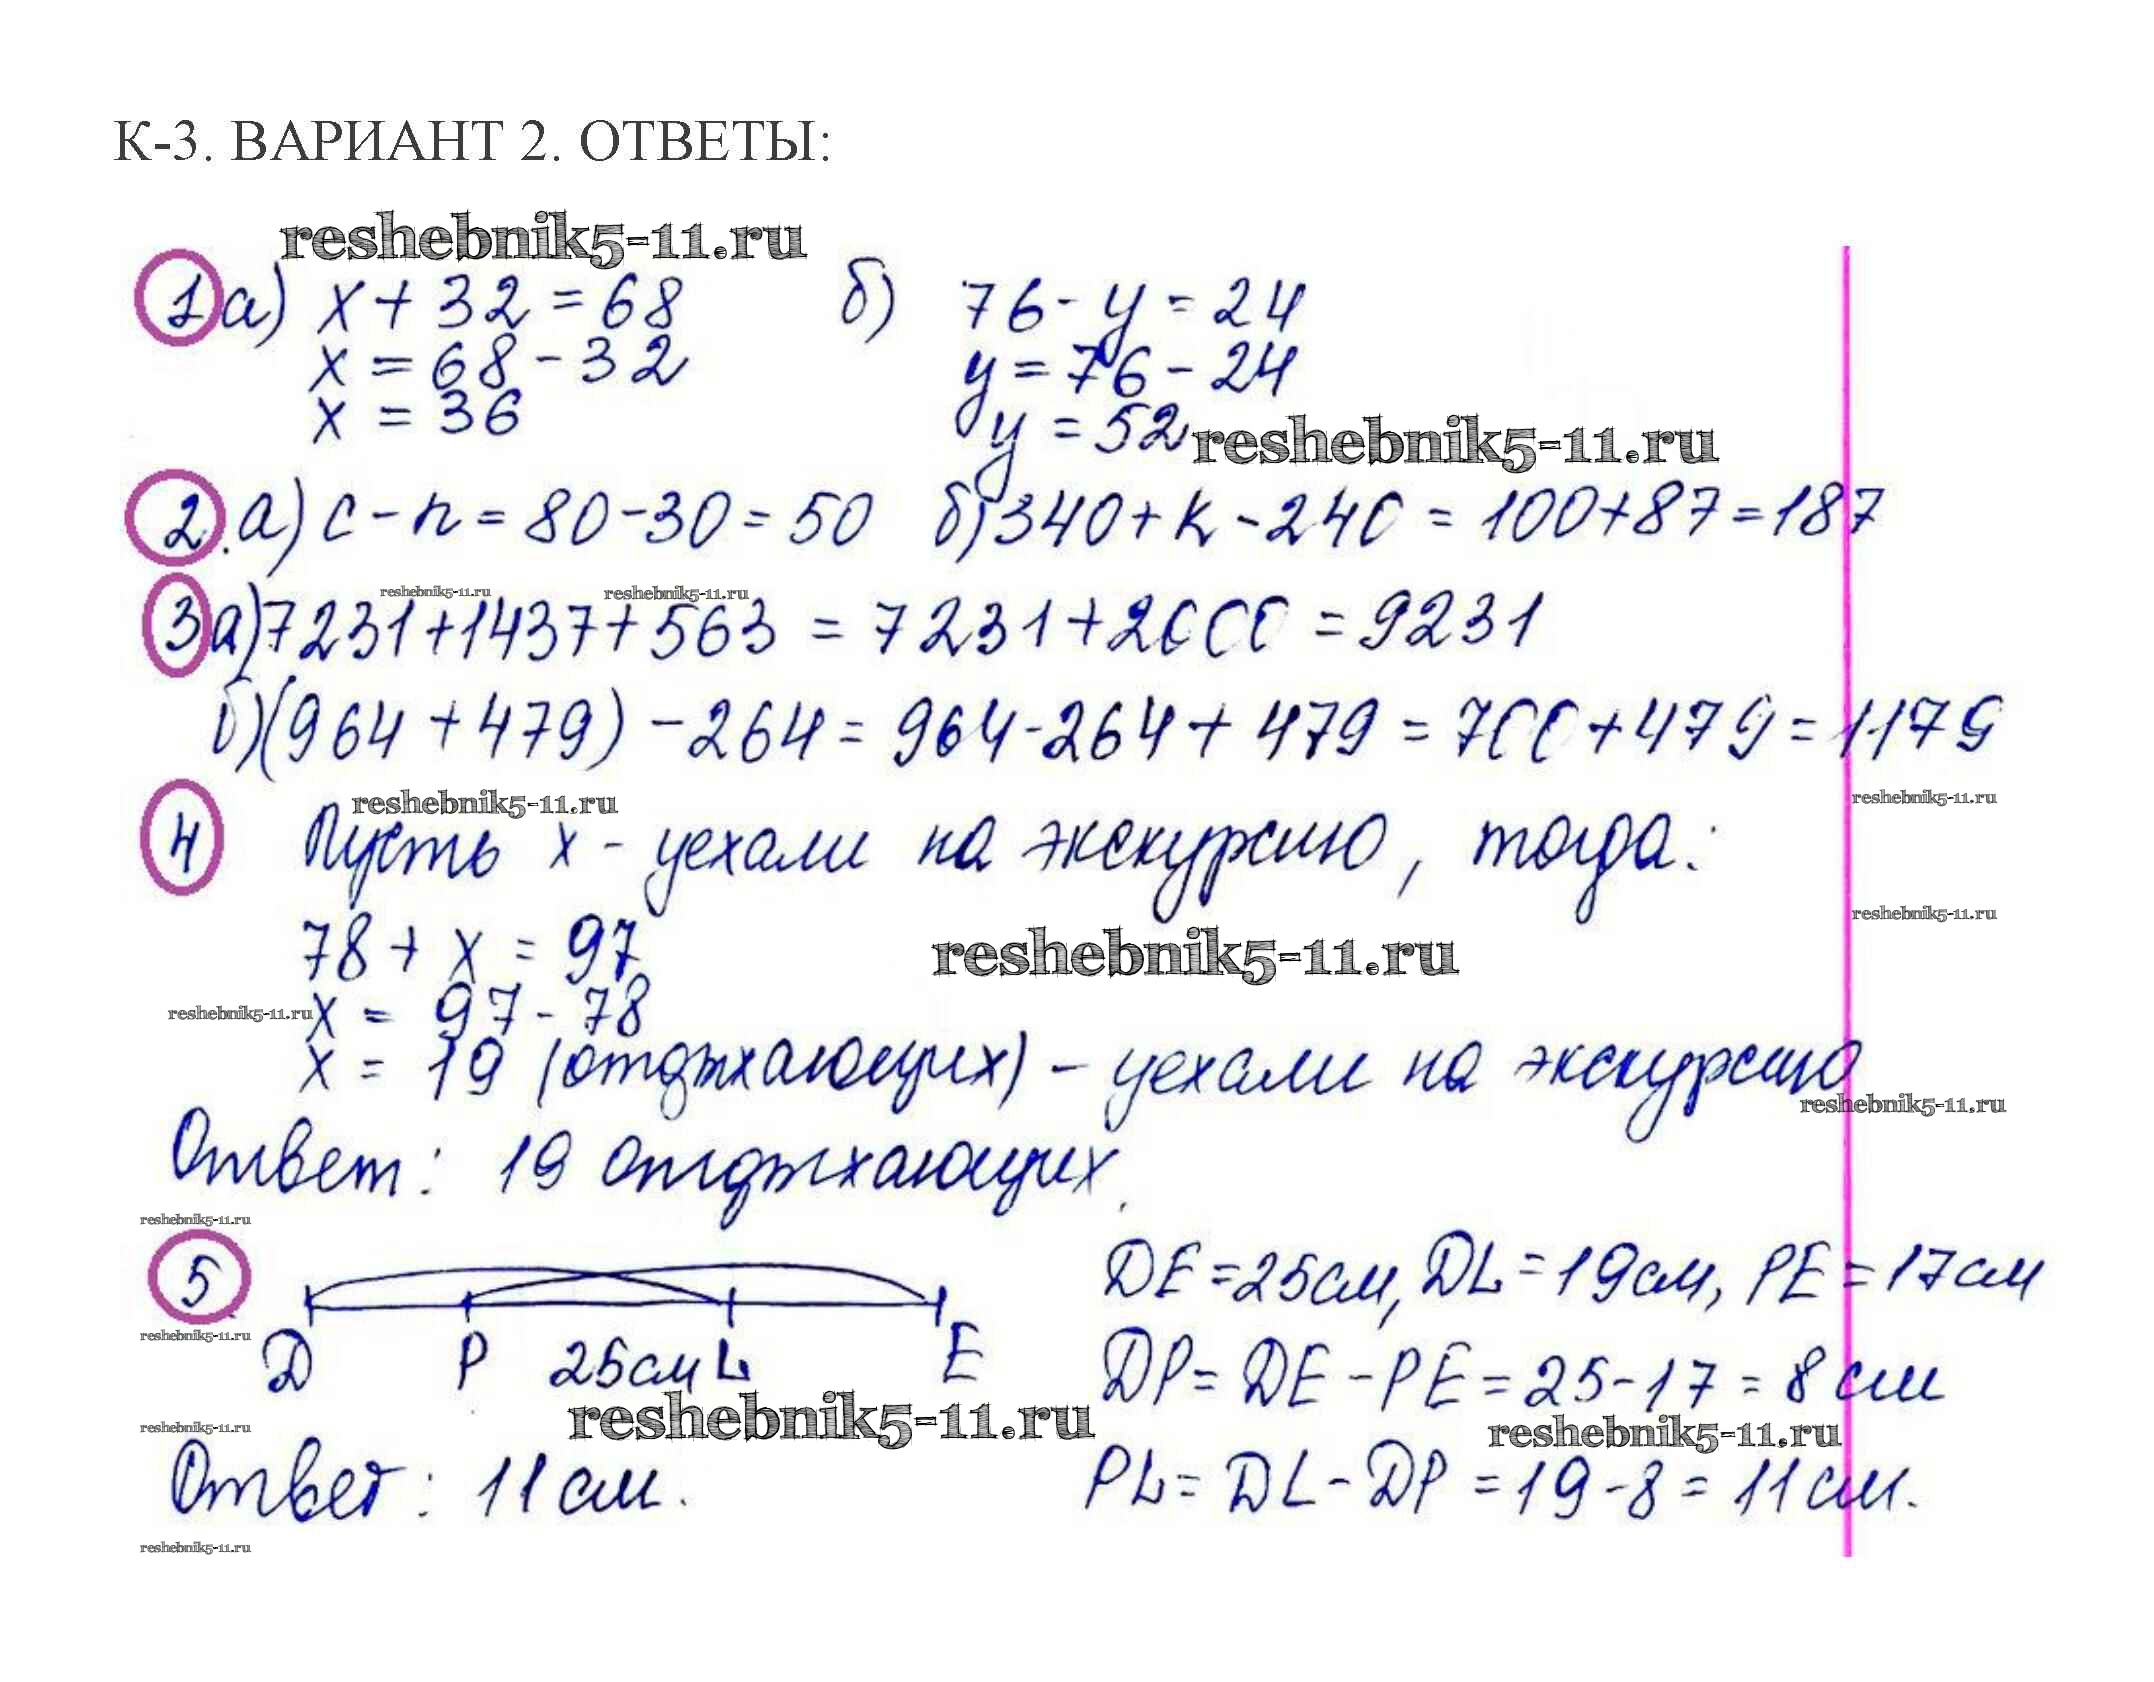 К-3. ВАРИАНТ 2. ОТВЕТЫ:
reshebnik5-11.ru
1 а) x + 32 = 68 б) 76 - y = 24
x = 68 - 32 y = 76 - 24
x = 36 y = 52 reshebnik5-11.ru
2. а) c - n = 80 - 30 = 50 б) 340 + k - 240 = 100 + 87 = 187
reshebnik5-11.ru reshebnik5-11.ru
3 а) 7231 + 1437 + 563 = 7231 + 2000 = 9231
б) (964 + 479) - 264 = 964 - 264 + 479 = 700 + 479 = 1179
reshebnik5-11.ru reshebnik5-11.ru
4 Пусть x - уехали на экскурсию, тогда:
reshebnik5-11.ru
78 + x = 97
reshebnik5-11.ru
reshebnik5-11.ru x = 97 - 78
x = 19 (отдыхающих) - уехали на экскурсию
reshebnik5-11.ru
Ответ: 19 отдыхающих.
reshebnik5-11.ru
5 DE = 25 см, DL = 19 см, PE = 17 см
reshebnik5-11.ru
D P 25 см L E DP = DE - PE = 25 - 17 = 8 см
reshebnik5-11.ru reshebnik5-11.ru reshebnik5-11.ru
Ответ: 11 см. PL = DL - DP = 19 - 8 = 11 см.
reshebnik5-11.ru